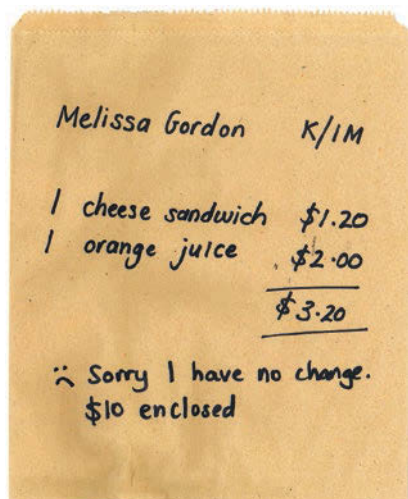 Melissa Gordon K/1M
1 cheese sandwich $1.20
1 orange juice $2.00
$3.20
:( Sorry I have no change.
$10 enclosed